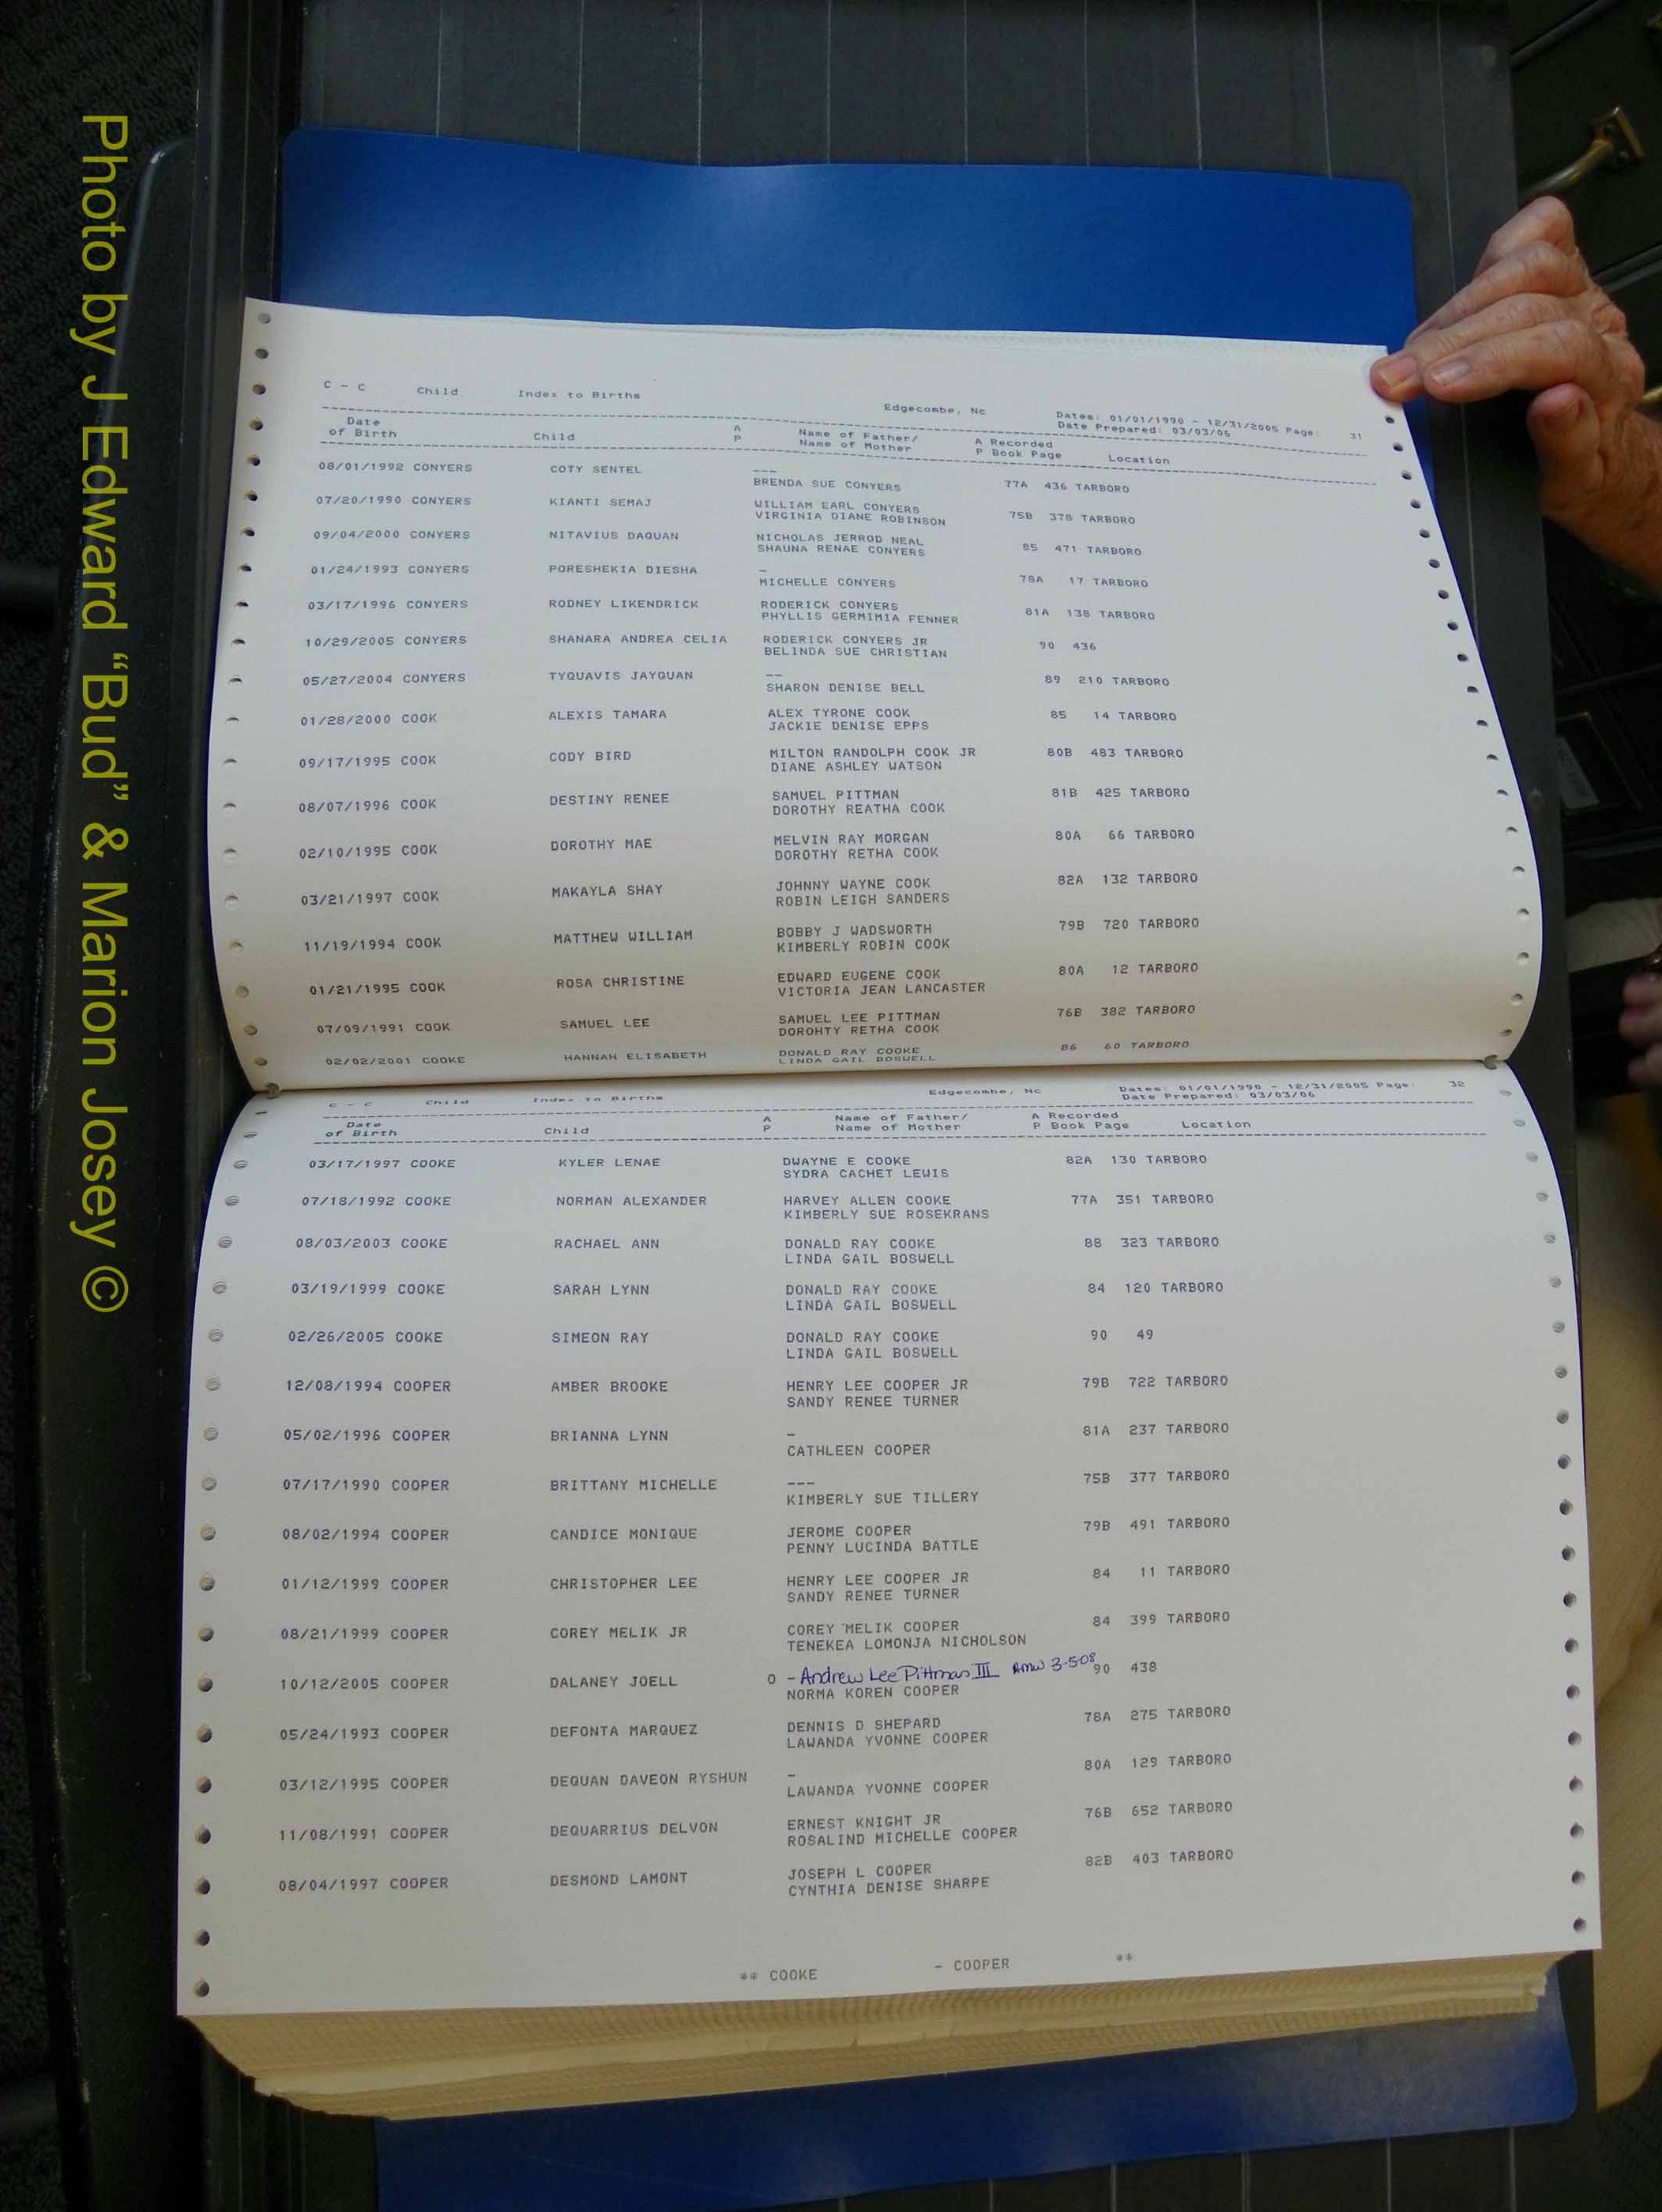 Photo by J Edward “Bud” & Marion Josey ©
C - C Child Index to Births Edgecombe, Nc Dates: 01/01/1990 - 12/31/2005 Page: 31
Date Prepared: 03/03/06
Date A Name of Father/ A Recorded
of Birth Child P Name of Mother P Book Page Location
08/01/1992 CONYERS COTY SENTEL --- 77A 436 TARBORO
BRENDA SUE CONYERS
07/20/1990 CONYERS KIANTI SEMAJ WILLIAM EARL CONYERS 75B 378 TARBORO
VIRGINIA DIANE ROBINSON
09/04/2000 CONYERS NITAVIUS DAQUAN NICHOLAS JERROD NEAL 85 471 TARBORO
SHAUNA RENAE CONYERS
01/24/1993 CONYERS PORESHEKIA DIESHA - 78A 17 TARBORO
MICHELLE CONYERS
03/17/1996 CONYERS RODNEY LIKENDRICK RODERICK CONYERS 81A 138 TARBORO
PHYLLIS GERMIMIA FENNER
10/29/2005 CONYERS SHANARA ANDREA CELIA RODERICK CONYERS JR 90 436
BELINDA SUE CHRISTIAN
05/27/2004 CONYERS TYQUAVIS JAYQUAN -- 89 210 TARBORO
SHARON DENISE BELL
01/28/2000 COOK ALEXIS TAMARA ALEX TYRONE COOK 85 14 TARBORO
JACKIE DENISE EPPS
09/17/1995 COOK CODY BIRD MILTON RANDOLPH COOK JR 80B 483 TARBORO
DIANE ASHLEY WATSON
08/07/1996 COOK DESTINY RENEE SAMUEL PITTMAN 81B 425 TARBORO
DOROTHY REATHA COOK
02/10/1995 COOK DOROTHY MAE MELVIN RAY MORGAN 80A 66 TARBORO
DOROTHY RETHA COOK
03/21/1997 COOK MAKAYLA SHAY JOHNNY WAYNE COOK 82A 132 TARBORO
ROBIN LEIGH SANDERS
11/19/1994 COOK MATTHEW WILLIAM BOBBY J WADSWORTH 79B 720 TARBORO
KIMBERLY ROBIN COOK
01/21/1995 COOK ROSA CHRISTINE EDWARD EUGENE COOK 80A 12 TARBORO
VICTORIA JEAN LANCASTER
07/09/1991 COOK SAMUEL LEE SAMUEL LEE PITTMAN 76B 382 TARBORO
DOROHTY RETHA COOK
02/02/2001 COOKE HANNAH ELISABETH DONALD RAY COOKE 86 60 TARBORO
LINDA GAIL BOSWELL
C - C Child Index to Births Edgecombe, Nc Dates: 01/01/1990 - 12/31/2005 Page: 32
Date Prepared: 03/03/06
Date A Name of Father/ A Recorded
of Birth Child P Name of Mother P Book Page Location
03/17/1997 COOKE KYLER LENAE DWAYNE E COOKE 82A 130 TARBORO
SYDRA CACHET LEWIS
07/18/1992 COOKE NORMAN ALEXANDER HARVEY ALLEN COOKE 77A 351 TARBORO
KIMBERLY SUE ROSEKRANS
08/03/2003 COOKE RACHAEL ANN DONALD RAY COOKE 88 323 TARBORO
LINDA GAIL BOSWELL
03/19/1999 COOKE SARAH LYNN DONALD RAY COOKE 84 120 TARBORO
LINDA GAIL BOSWELL
02/26/2005 COOKE SIMEON RAY DONALD RAY COOKE 90 49
LINDA GAIL BOSWELL
12/08/1994 COOPER AMBER BROOKE HENRY LEE COOPER JR 79B 722 TARBORO
SANDY RENEE TURNER
05/02/1996 COOPER BRIANNA LYNN - 81A 237 TARBORO
CATHLEEN COOPER
07/17/1990 COOPER BRITTANY MICHELLE --- 75B 377 TARBORO
KIMBERLY SUE TILLERY
08/02/1994 COOPER CANDICE MONIQUE JEROME COOPER 79B 491 TARBORO
PENNY LUCINDA BATTLE
01/12/1999 COOPER CHRISTOPHER LEE HENRY LEE COOPER JR 84 11 TARBORO
SANDY RENEE TURNER
08/21/1999 COOPER COREY MELIK JR COREY MELIK COOPER 84 399 TARBORO
TENEKEA LOMONJA NICHOLSON
10/12/2005 COOPER DALANEY JOELL O - Andrew Lee Pittman III AMW 3-5-08 90 438
NORMA KOREN COOPER
05/24/1993 COOPER DEFONTA MARQUEZ DENNIS D SHEPARD 78A 275 TARBORO
LAWANDA YVONNE COOPER
03/12/1995 COOPER DEQUAN DAVEON RYSHUN - 80A 129 TARBORO
LAWANDA YVONNE COOPER
11/08/1991 COOPER DEQUARRIUS DELVON ERNEST KNIGHT JR 76B 652 TARBORO
ROSALIND MICHELLE COOPER
08/04/1997 COOPER DESMOND LAMONT JOSEPH L COOPER 82B 403 TARBORO
CYNTHIA DENISE SHARPE
** COOKE - COOPER **